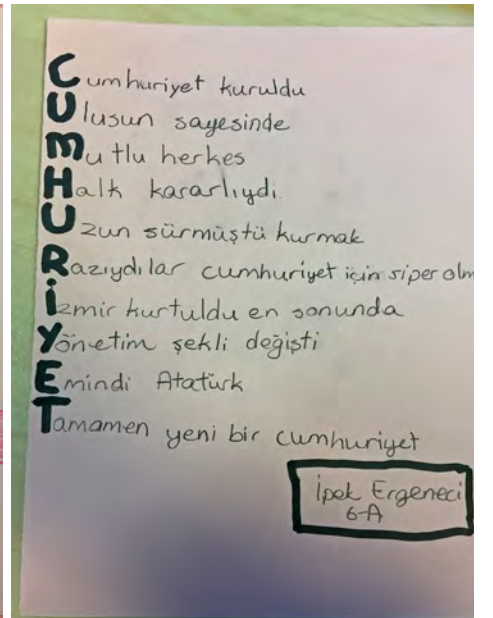 Cumhuriyet kuruldu
Ulusun sayesinde
Mutlu herkes
Halk kararlıydı
Uzun sürmüştü kurmak
Razıydılar cumhuriyet için siper olm
İzmir kurtuldu en sonunda
Yönetim şekli değişti
Emindi Atatürk
Tamamen yeni bir cumhuriyet
İpek Ergeneci
6-A